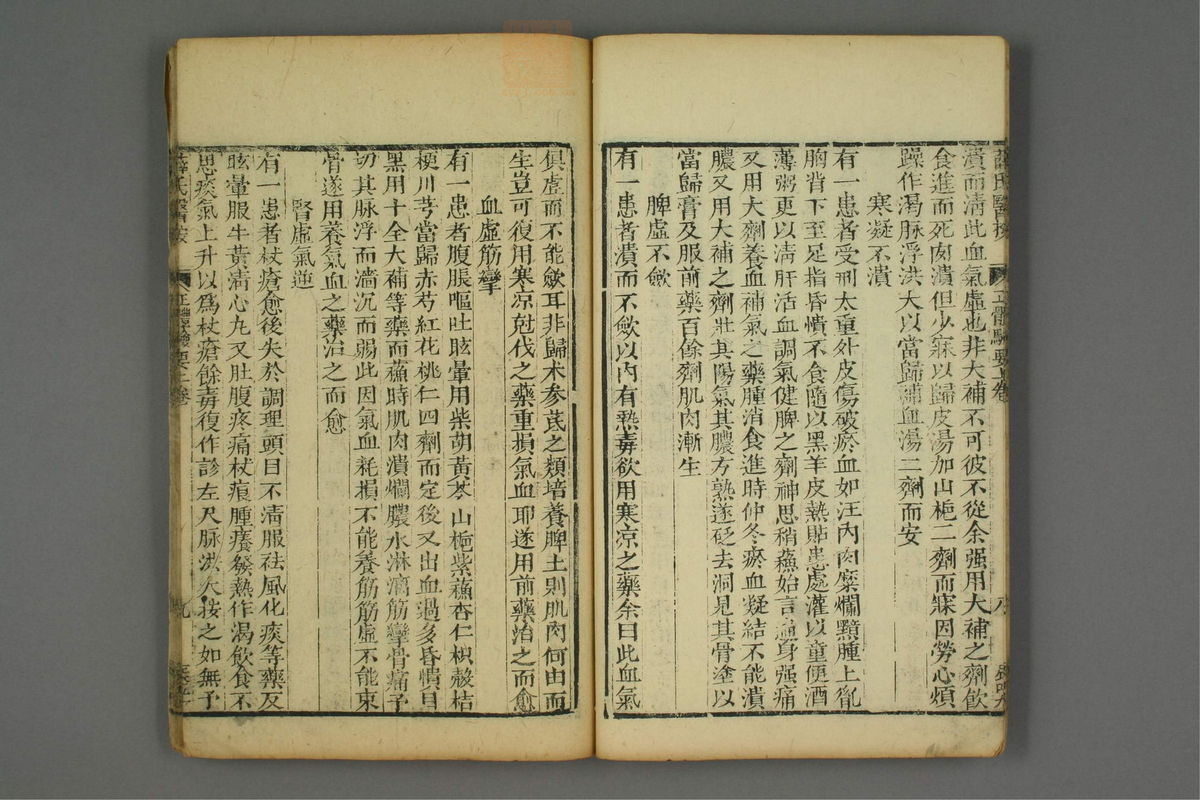 薛氏醫按 正體類要上卷 八
潰而清此血氣虛也非大補不可彼不從余强用大補之劑飲
食進而死肉潰但少寐以歸皮湯加山梔二劑而寐因勞心煩
躁作渴脉浮洪大以當歸補血湯二劑而安
寒凝不潰
有一患者受刑太重外皮傷破瘀血如注內肉糜爛黯腫上胤
胸背下至足指昏憒不食隨以黑羊皮熱貼患處灌以童便酒
薄粥更以清肝活血調氣健脾之劑神思稍蘇始言遍身强痛
又用大劑養血補氣之藥腫消食進時仲冬瘀血凝結不能潰
膿又用大補之劑壯其陽氣其膿方熟遂砭去洞見其骨塗以
當歸膏及服前藥百餘劑肌肉漸生
脾虛不歛
有一患者潰而不歛以內有熱毒欲用寒凉之藥余曰此血氣
俱虛而不能歛耳非歸术参茋之類培養脾土則肌肉何由而
生豈可復用寒凉尅伐之藥重損氣血耶遂用前藥治之而愈
血虛筋攣
有一患者腹脹嘔吐眩暈用柴胡黃芩山梔紫蘇杏仁枳殼桔
梗川芎當歸赤芍紅花桃仁四劑而定後又出血過多昏憒目
黑用十全大補等藥而蘇時肌肉潰爛膿水淋漓筋攣骨痛予
切其脉浮而濇沉而弱此因氣血耗損不能養筋筋虛不能束
骨遂用養氣血之藥治之而愈
腎虛氣逆
有一患者杖瘡愈後失於調理頭目不清服祛風化痰等藥反
眩暈服牛黃清心丸又肚腹疼痛杖痕腫癢發熱作渴飲食不
思痰氣上升以爲杖瘡餘毒復作診左尺脉洪大按之如無予
薛氏醫按 正體類要上卷 九